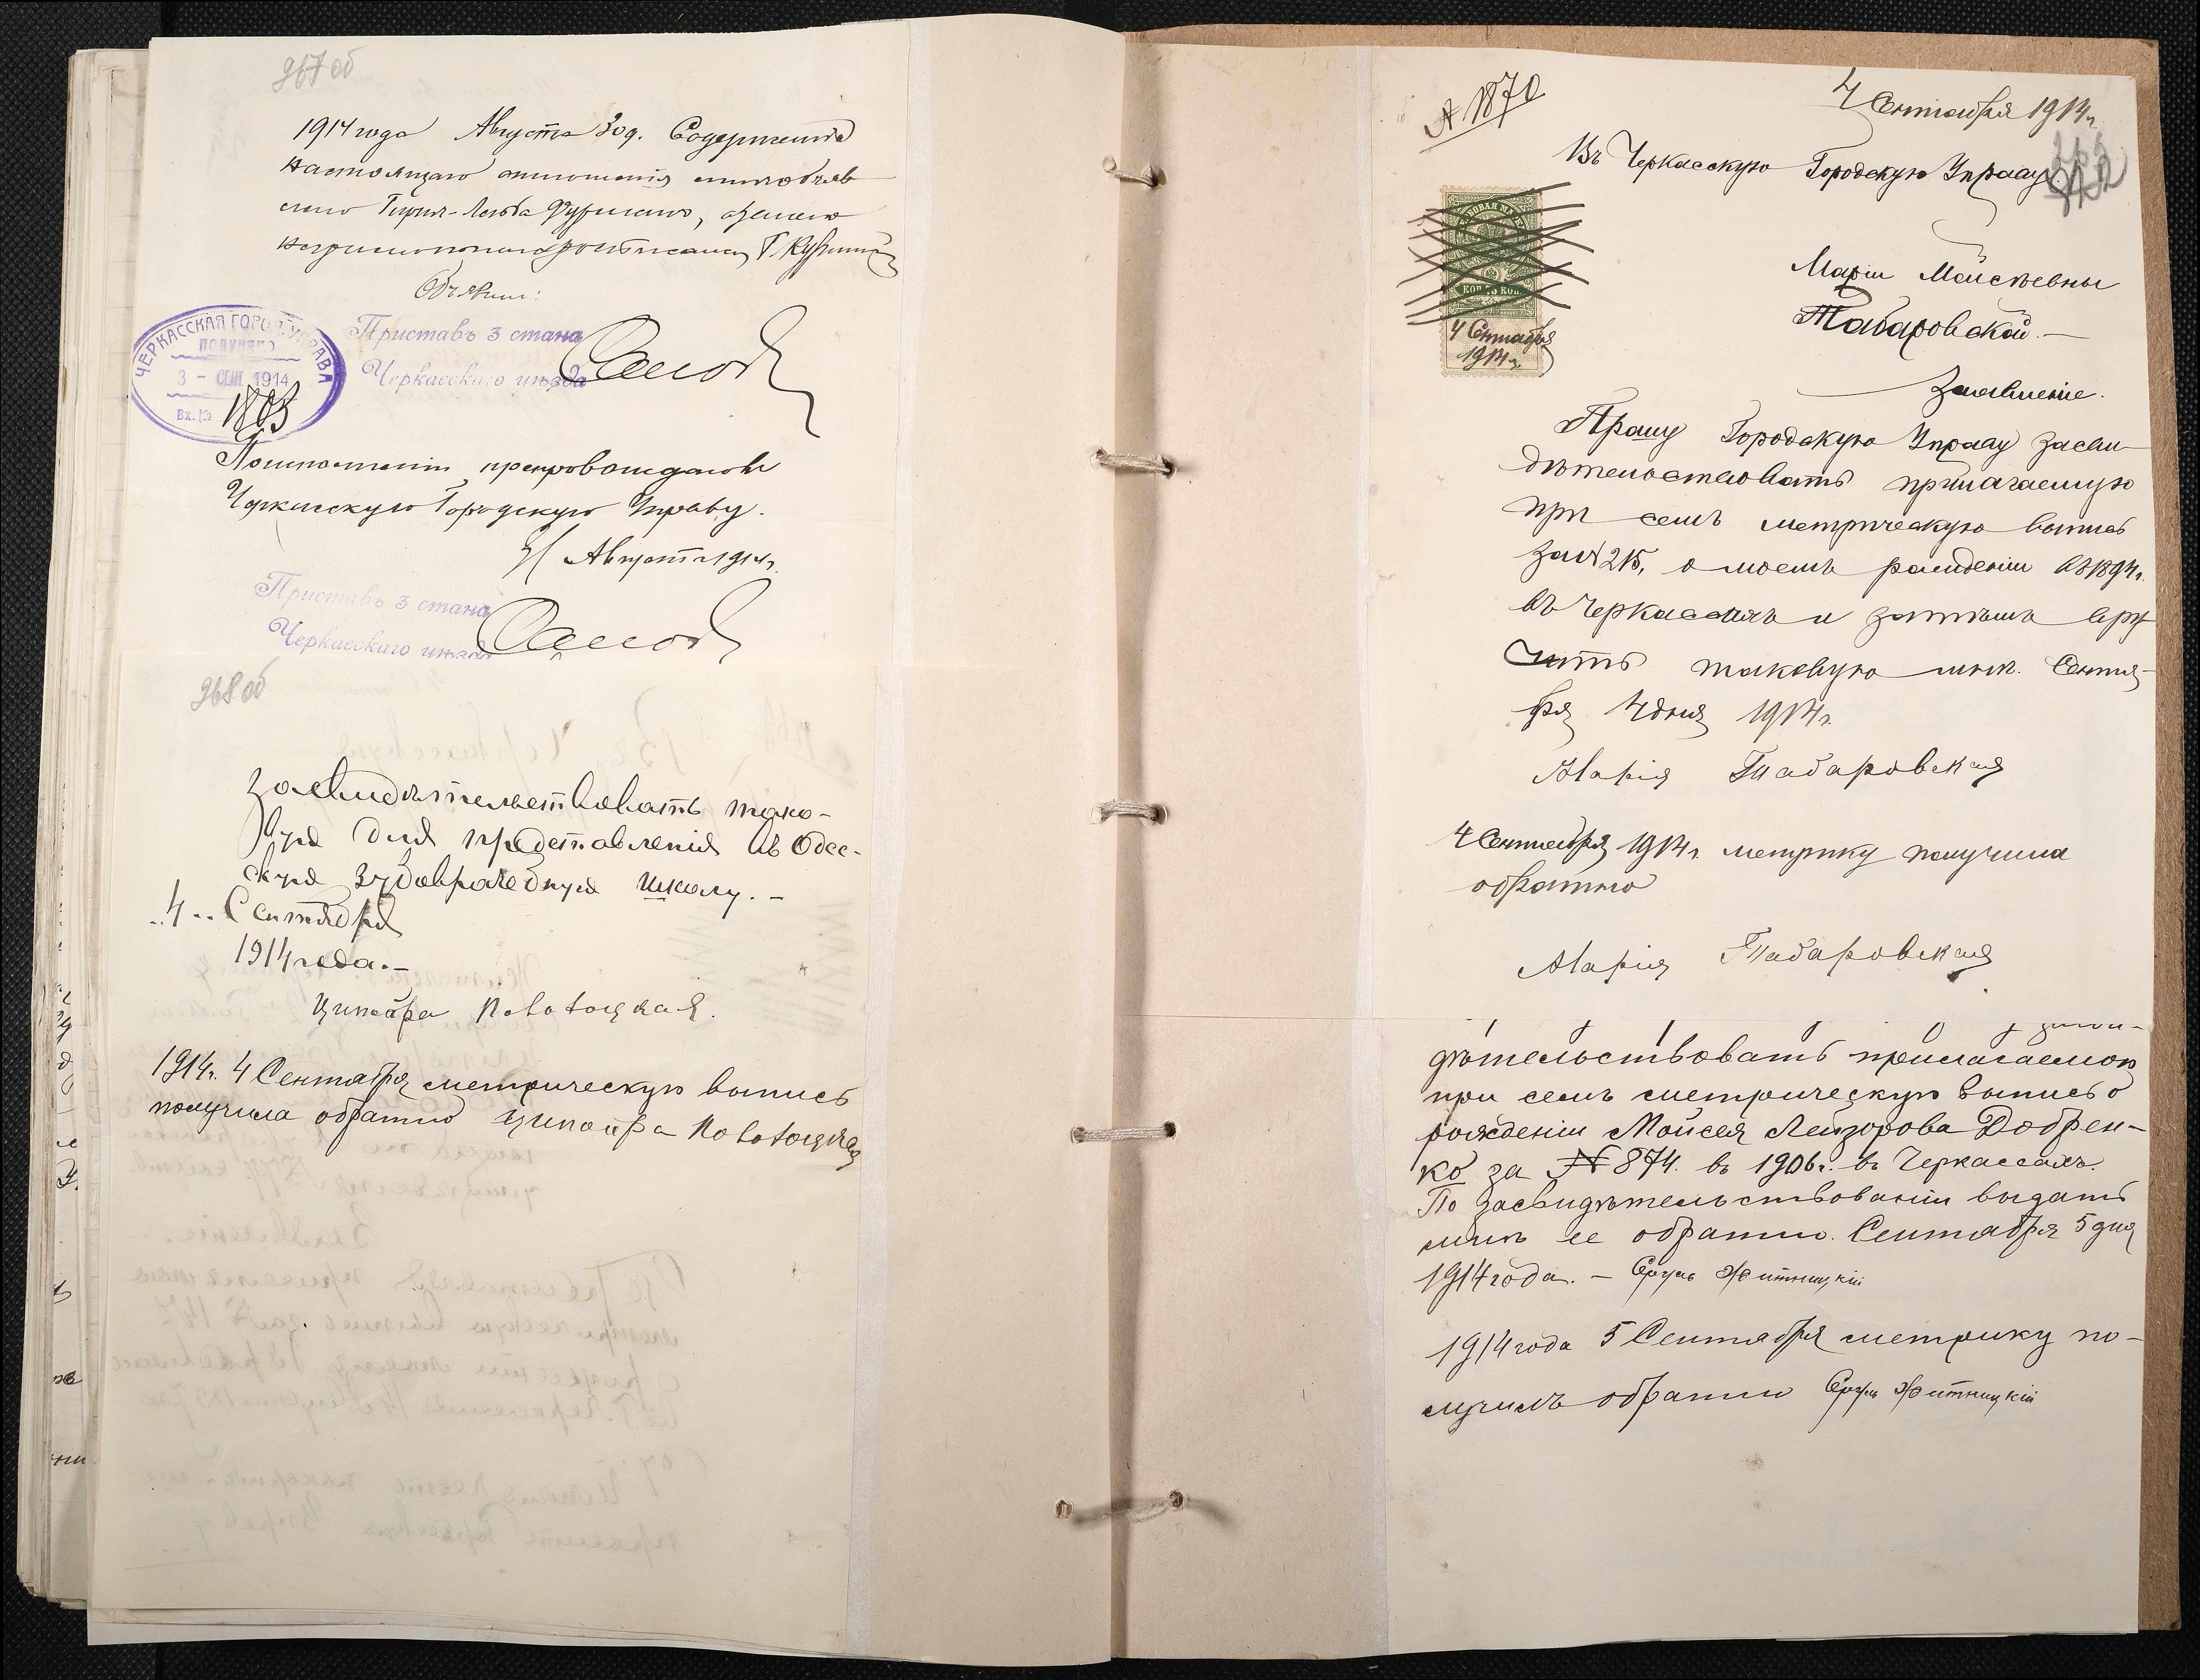 967 об
1914 года Августа 30 д. Содержание
настоящаго отношения мне объяв
лено Гирш-Лейба Фурман, в чемъ
Объявил:
Приставъ 3 стана
Черкасскаго уѣзда
ЧЕРКАССКАЯ ГОРОД. УПРАВА
ПОЛУЧЕНО
3 - СЕН 1914
Вх. №
1863
препровождаю в
Черкасскую Городскую Управу.
31 Августа 1914 г.
Приставъ 3 стана
Черкасскаго уѣзда
968 об
засвидѣтельствовать тако-
вую для представленія въ Одес-
скую зубоврачебную школу. -
"4" Сентября
1914 года. -
Ципойра Новотоцкая.
1914 г. 4 Сентября метрическую выпись
получила обратно Ципойра Новотоцкая
№ 1870
4 Сентября 1914 г.
Въ Черкасскую Городскую Управу.
КОП. 75 КОП.
4 Сентября
1914 г.
Маріи Мойсѣевны
Табаровской. -
Заявленіе.
Прошу Городскую Управу засви-
дѣтельствовать прилагаемую
при семъ метрическую выпись
за № 215, о моемъ рожденіи въ 1894 г.
въ Черкассахъ и затѣмъ вру
чить таковую мнѣ. Сентя-
бря 4 дня 1914 г.
Марія Табаровская
4 Сентября 1914 г. метрику получила
обратно
Марія Табаровская
дѣтельствовать прилагаемую
при семъ метрическую выпись о
рождении Мойсея Лейзорова Добрен-
ко за № 874. въ 1906 г. въ Черкассахъ.
По засвидѣтельствованіи выдать
мнѣ ее обратно. Сентября 5 дня
1914 года. - Сруль Житницкій
1914 года 5 Сентября метрику по-
лучилъ обратно Сруль Житницкій